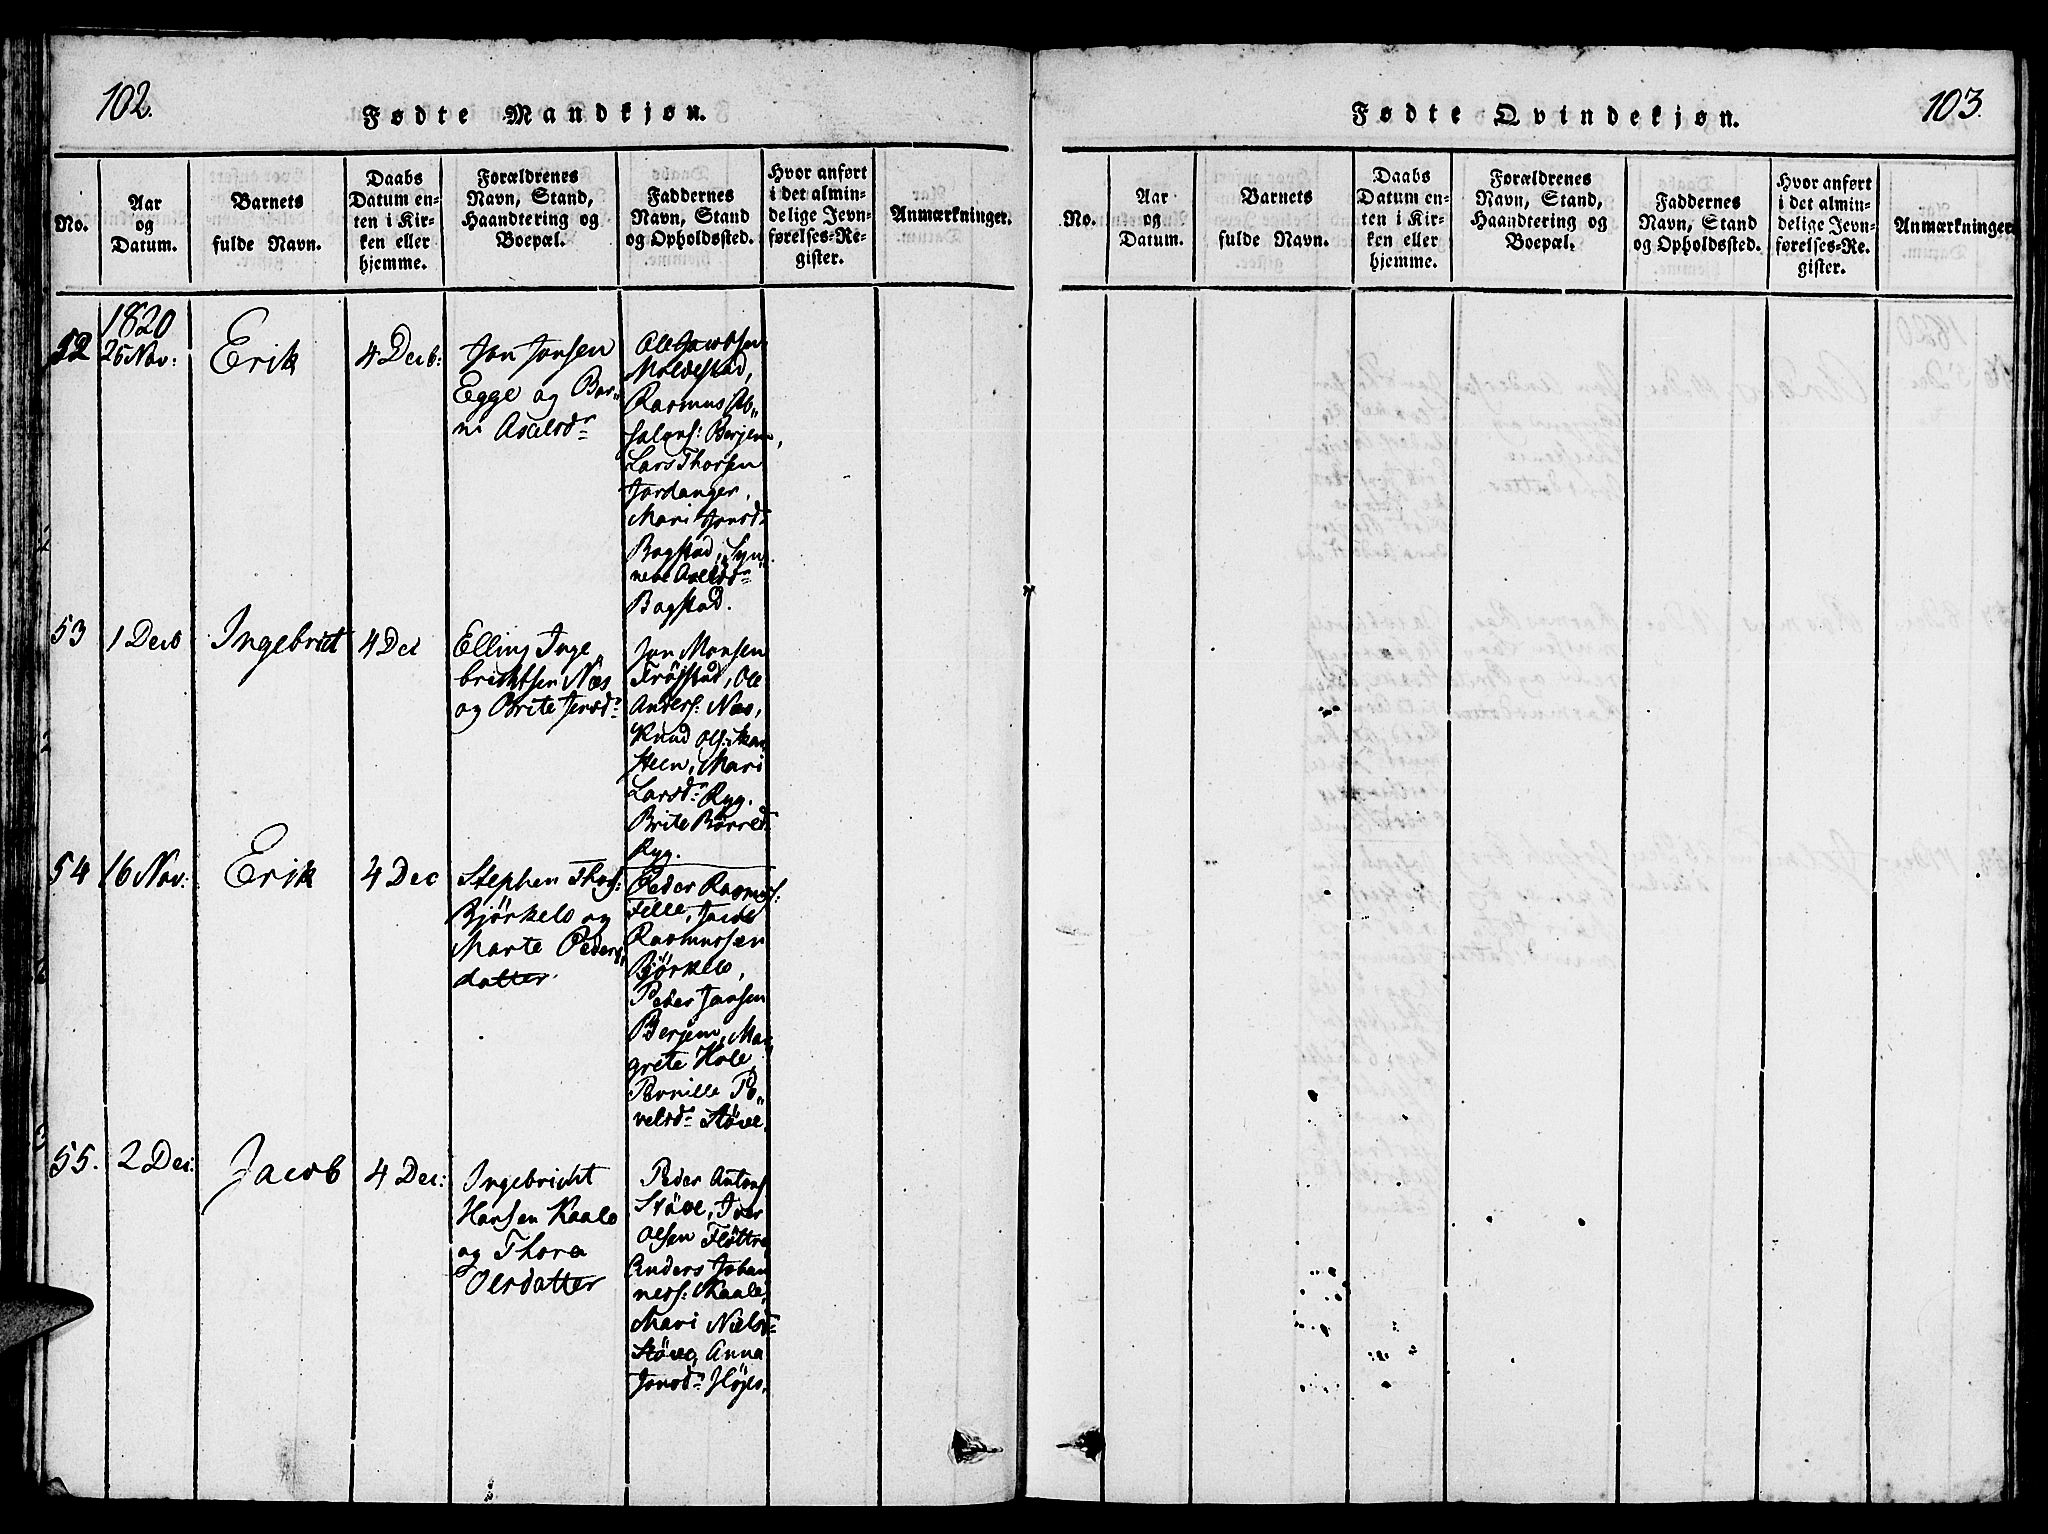 102.
Fødte Mandkjøn.
No.
Aar
og
Datum.
Barnets
fulde Navn.
Daabs
Datum en-
ten i Kir-
ken eller
hjemme.
Forældrenes
Navn, Stand,
Haandtering og
Boepæl.
Faddernes
Navn, Stand
og Opholdssted.
Hvor anført
i det almin-
delige Jevn-
førelses-Re-
gister.
Anmærkninger.
1820
52
25 Nov:
Erik
4 Decb:
Jon Jonsen
Egge og Bar-
ni Axelsdr
Ole Jacobsen
Moldestad,
Rasmus Ab-
salons: Berjem,
Lars Thorsen
Jordanger.
Mari Jonsdr
Bogstad, Syn-
neve Axelsdr
Bogstad.
53
1 Decb
Ingebrict
4 Dec
Elling Inge
brichtsen Næs
og Brite Jensdr
Jon Monsen
Frøistad, Ole
Anders: Næs,
Knud Ols:
Steen, Mari
Larsdr Ryg.
Brite
Ryg.
54
16 Nov:
Erik
4 Dec
Stephen Thors:
Bjørkelo og
Marte Peders
datter
Peder Rasmus:
Felle, Jacob
Rasmussen
Bjørkelo,
Peder Jonsen
Berjem, Mar
grete Hole
Pernille Po-
velsdr Støve.
55.
2 Dec:
Jacob
4 Dec:
Ingebricht
Hansen Kaale
og Thora
Olesdatter
Peder Antons
Støve, Iver
Olsen Fløttre
Anders Johan
ness: Kaale,
Mari Nielsdr
Støve, Anna
Jonsdr Højes.
103.
Fødte Qvindekjøn.
No.
Aar
og
Datum.
Barnets
fulde Navn.
Daabs
Datum en-
ten i Kir-
ken eller
hjemme.
Forældrenes
Navn, Stand,
Haandtering og
Boepæl.
Faddernes
Navn, Stand
og Opholdssted.
Hvor anført
i det almin-
delige Jevn-
førelses-Re-
gister.
Anmærkninger